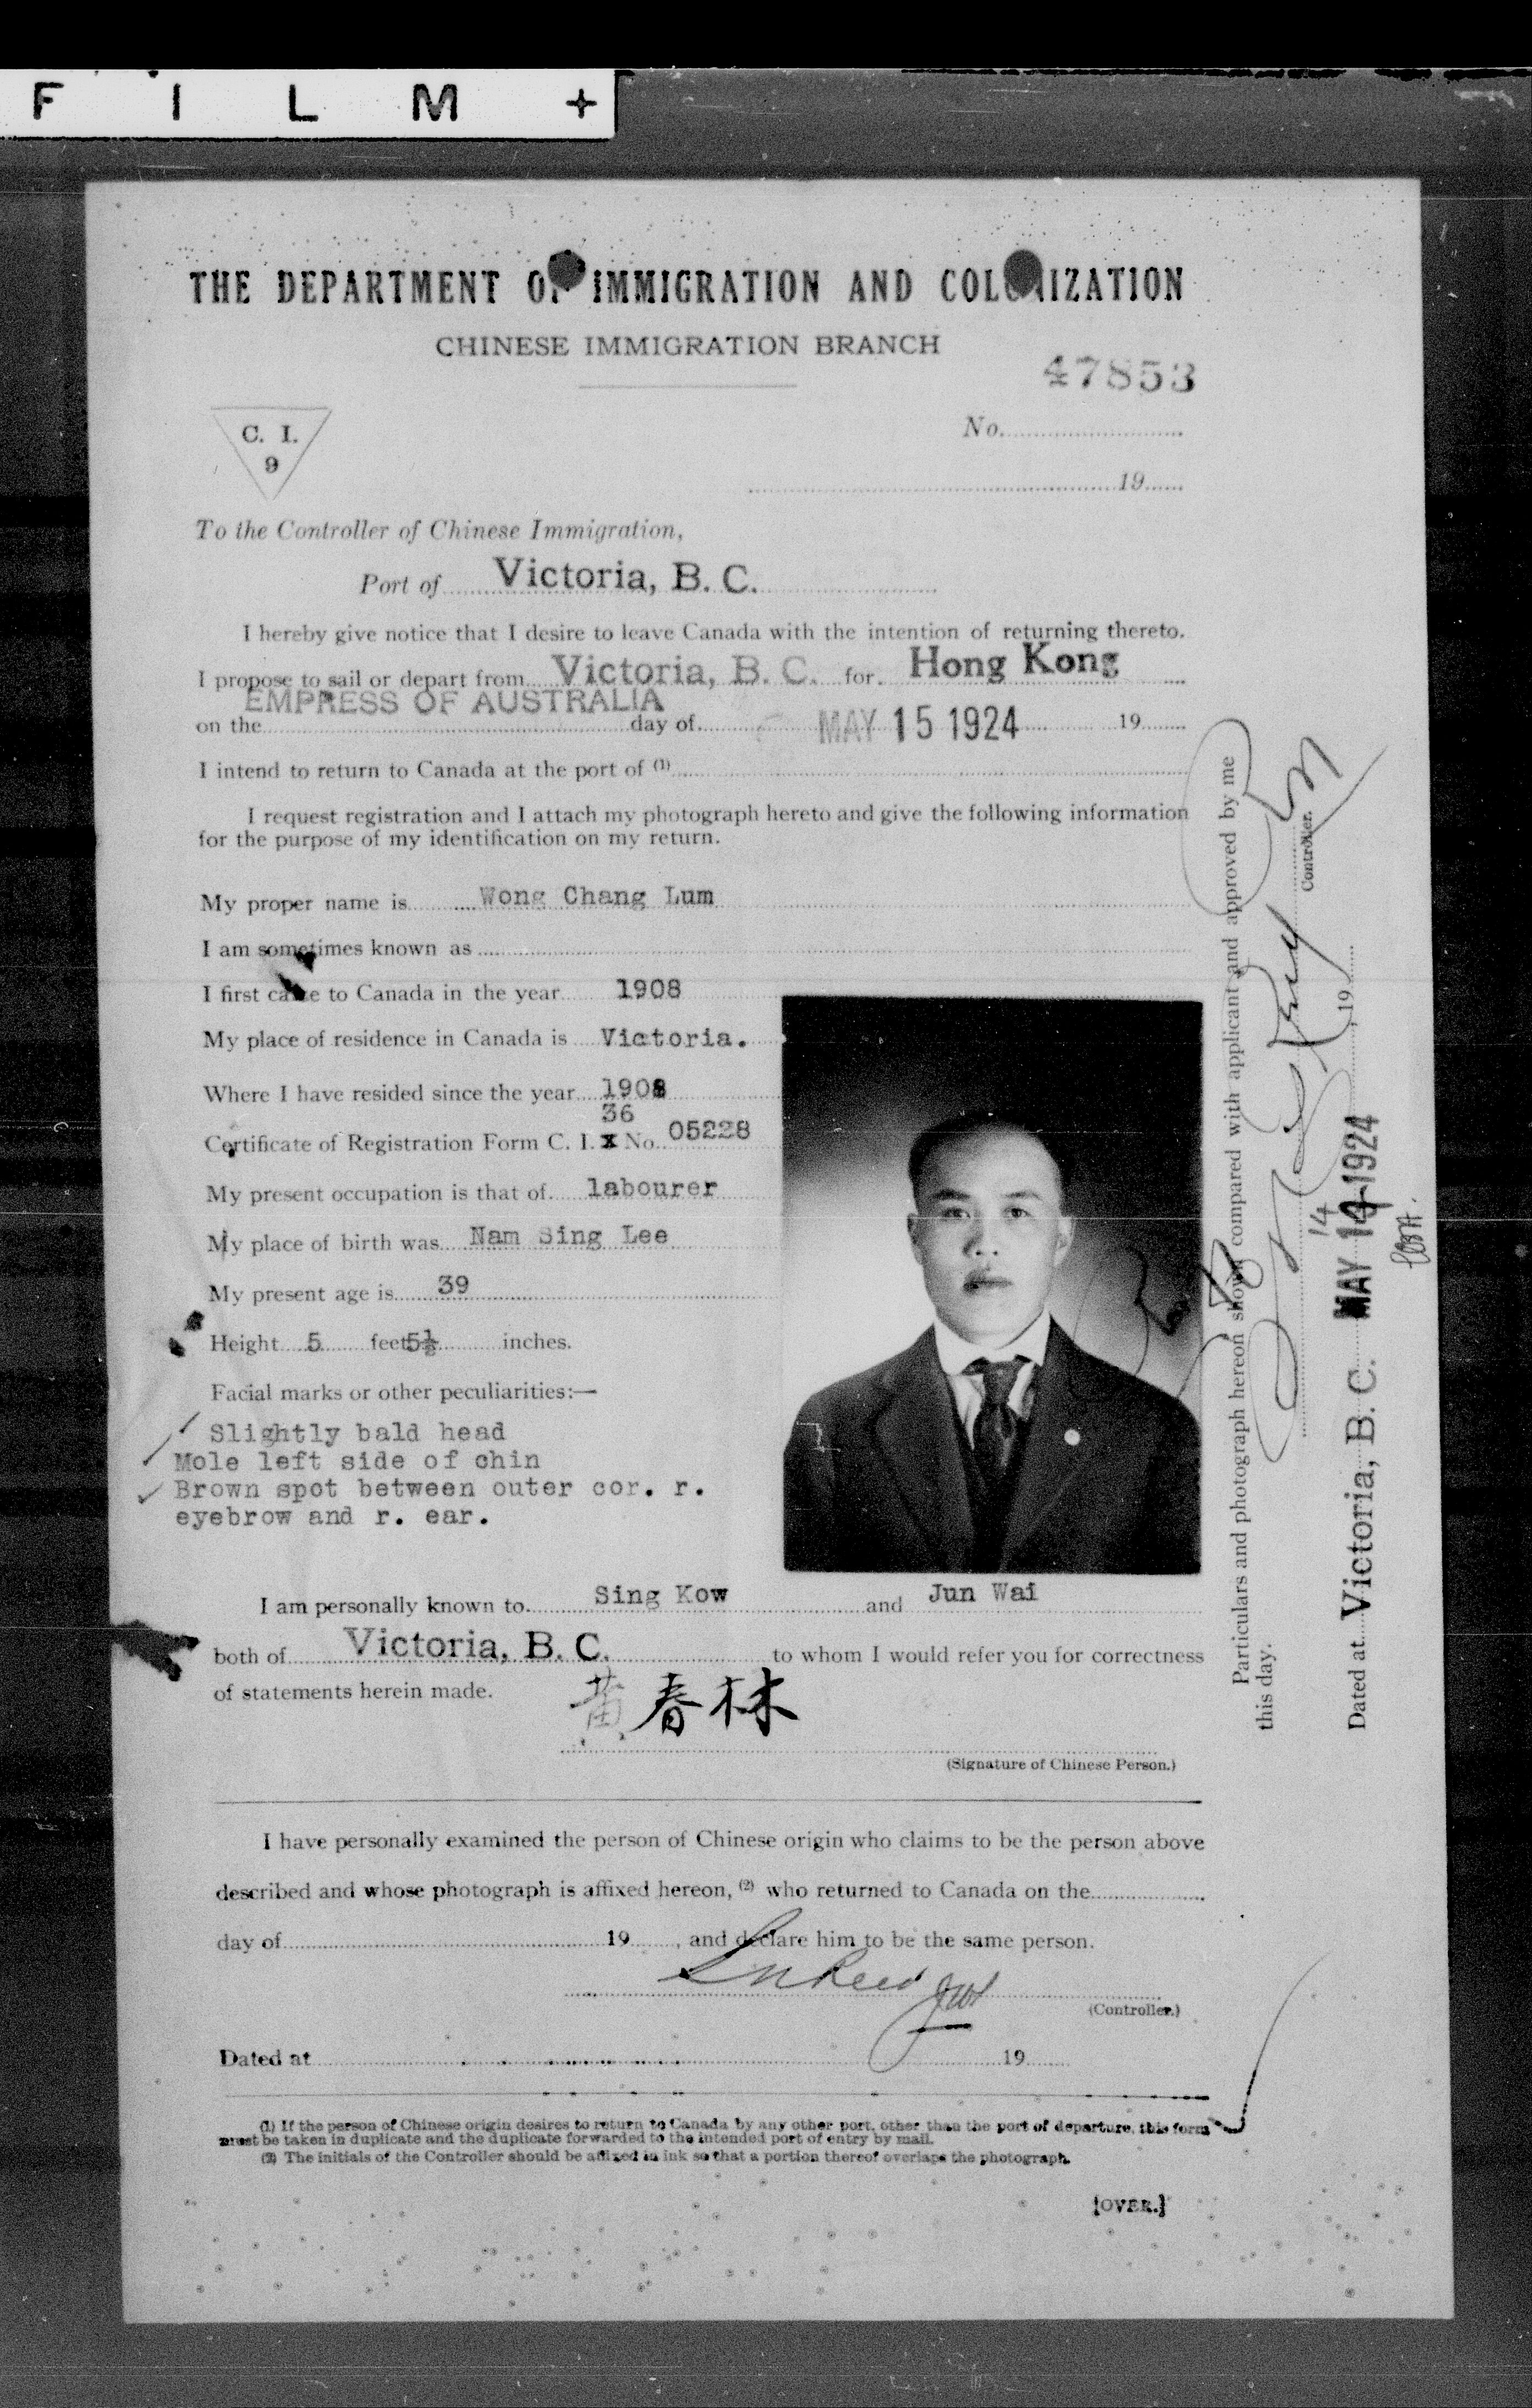 FILM +
THE DEPARTMENT OF IMMIGRATION AND COLONIZATION
CHINESE IMMIGRATION BRANCH
47853
C. I.
9
No.
19
To the Controller of Chinese Immigration,
Port of Victoria, B. C.
I hereby give notice that I desire to leave Canada with the intention of returning thereto.
I propose to sail or depart from Victoria, B. C. for Hong Kong
EMPRESS OF AUSTRALIA
on the day of MAY 15 1924 19
I intend to return to Canada at the port of (1)
I request registration and I attach my photograph hereto and give the following information
for the purpose of my identification on my return.
My proper name is Wong Chang Lum
I am sometimes known as
I first came to Canada in the year 1908
My place of residence in Canada is Victoria.
Where I have resided since the year 1908
36
Certificate of Registration Form C. I. X No. 05228
My present occupation is that of labourer
My place of birth was Nam Sing Lee
My present age is 39
Height 5 feet 5½ inches.
Facial marks or other peculiarities:—
Slightly bald head
Mole left side of chin
Brown spot between outer cor. r.
eyebrow and r. ear.
I am personally known to Sing Kow and Jun Wai
both of Victoria, B. C. to whom I would refer you for correctness
of statements herein made.
黄春林
(Signature of Chinese Person.)
I have personally examined the person of Chinese origin who claims to be the person above
described and whose photograph is affixed hereon, (2) who returned to Canada on the
day of 19 , and declare him to be the same person.
(Controller.)
Dated at 19
(1) If the person of Chinese origin desires to return to Canada by any other port, other than the port of departure, this form
must be taken in duplicate and the duplicate forwarded to the intended port of entry by mail.
(2) The initials of the Controller should be affixed in ink so that a portion thereof overlaps the photograph.
[OVER.]
Particulars and photograph hereon shown compared with applicant and approved by me
this day.
Controller.
14
Dated at Victoria, B. C. MAY 14 1924 , 19